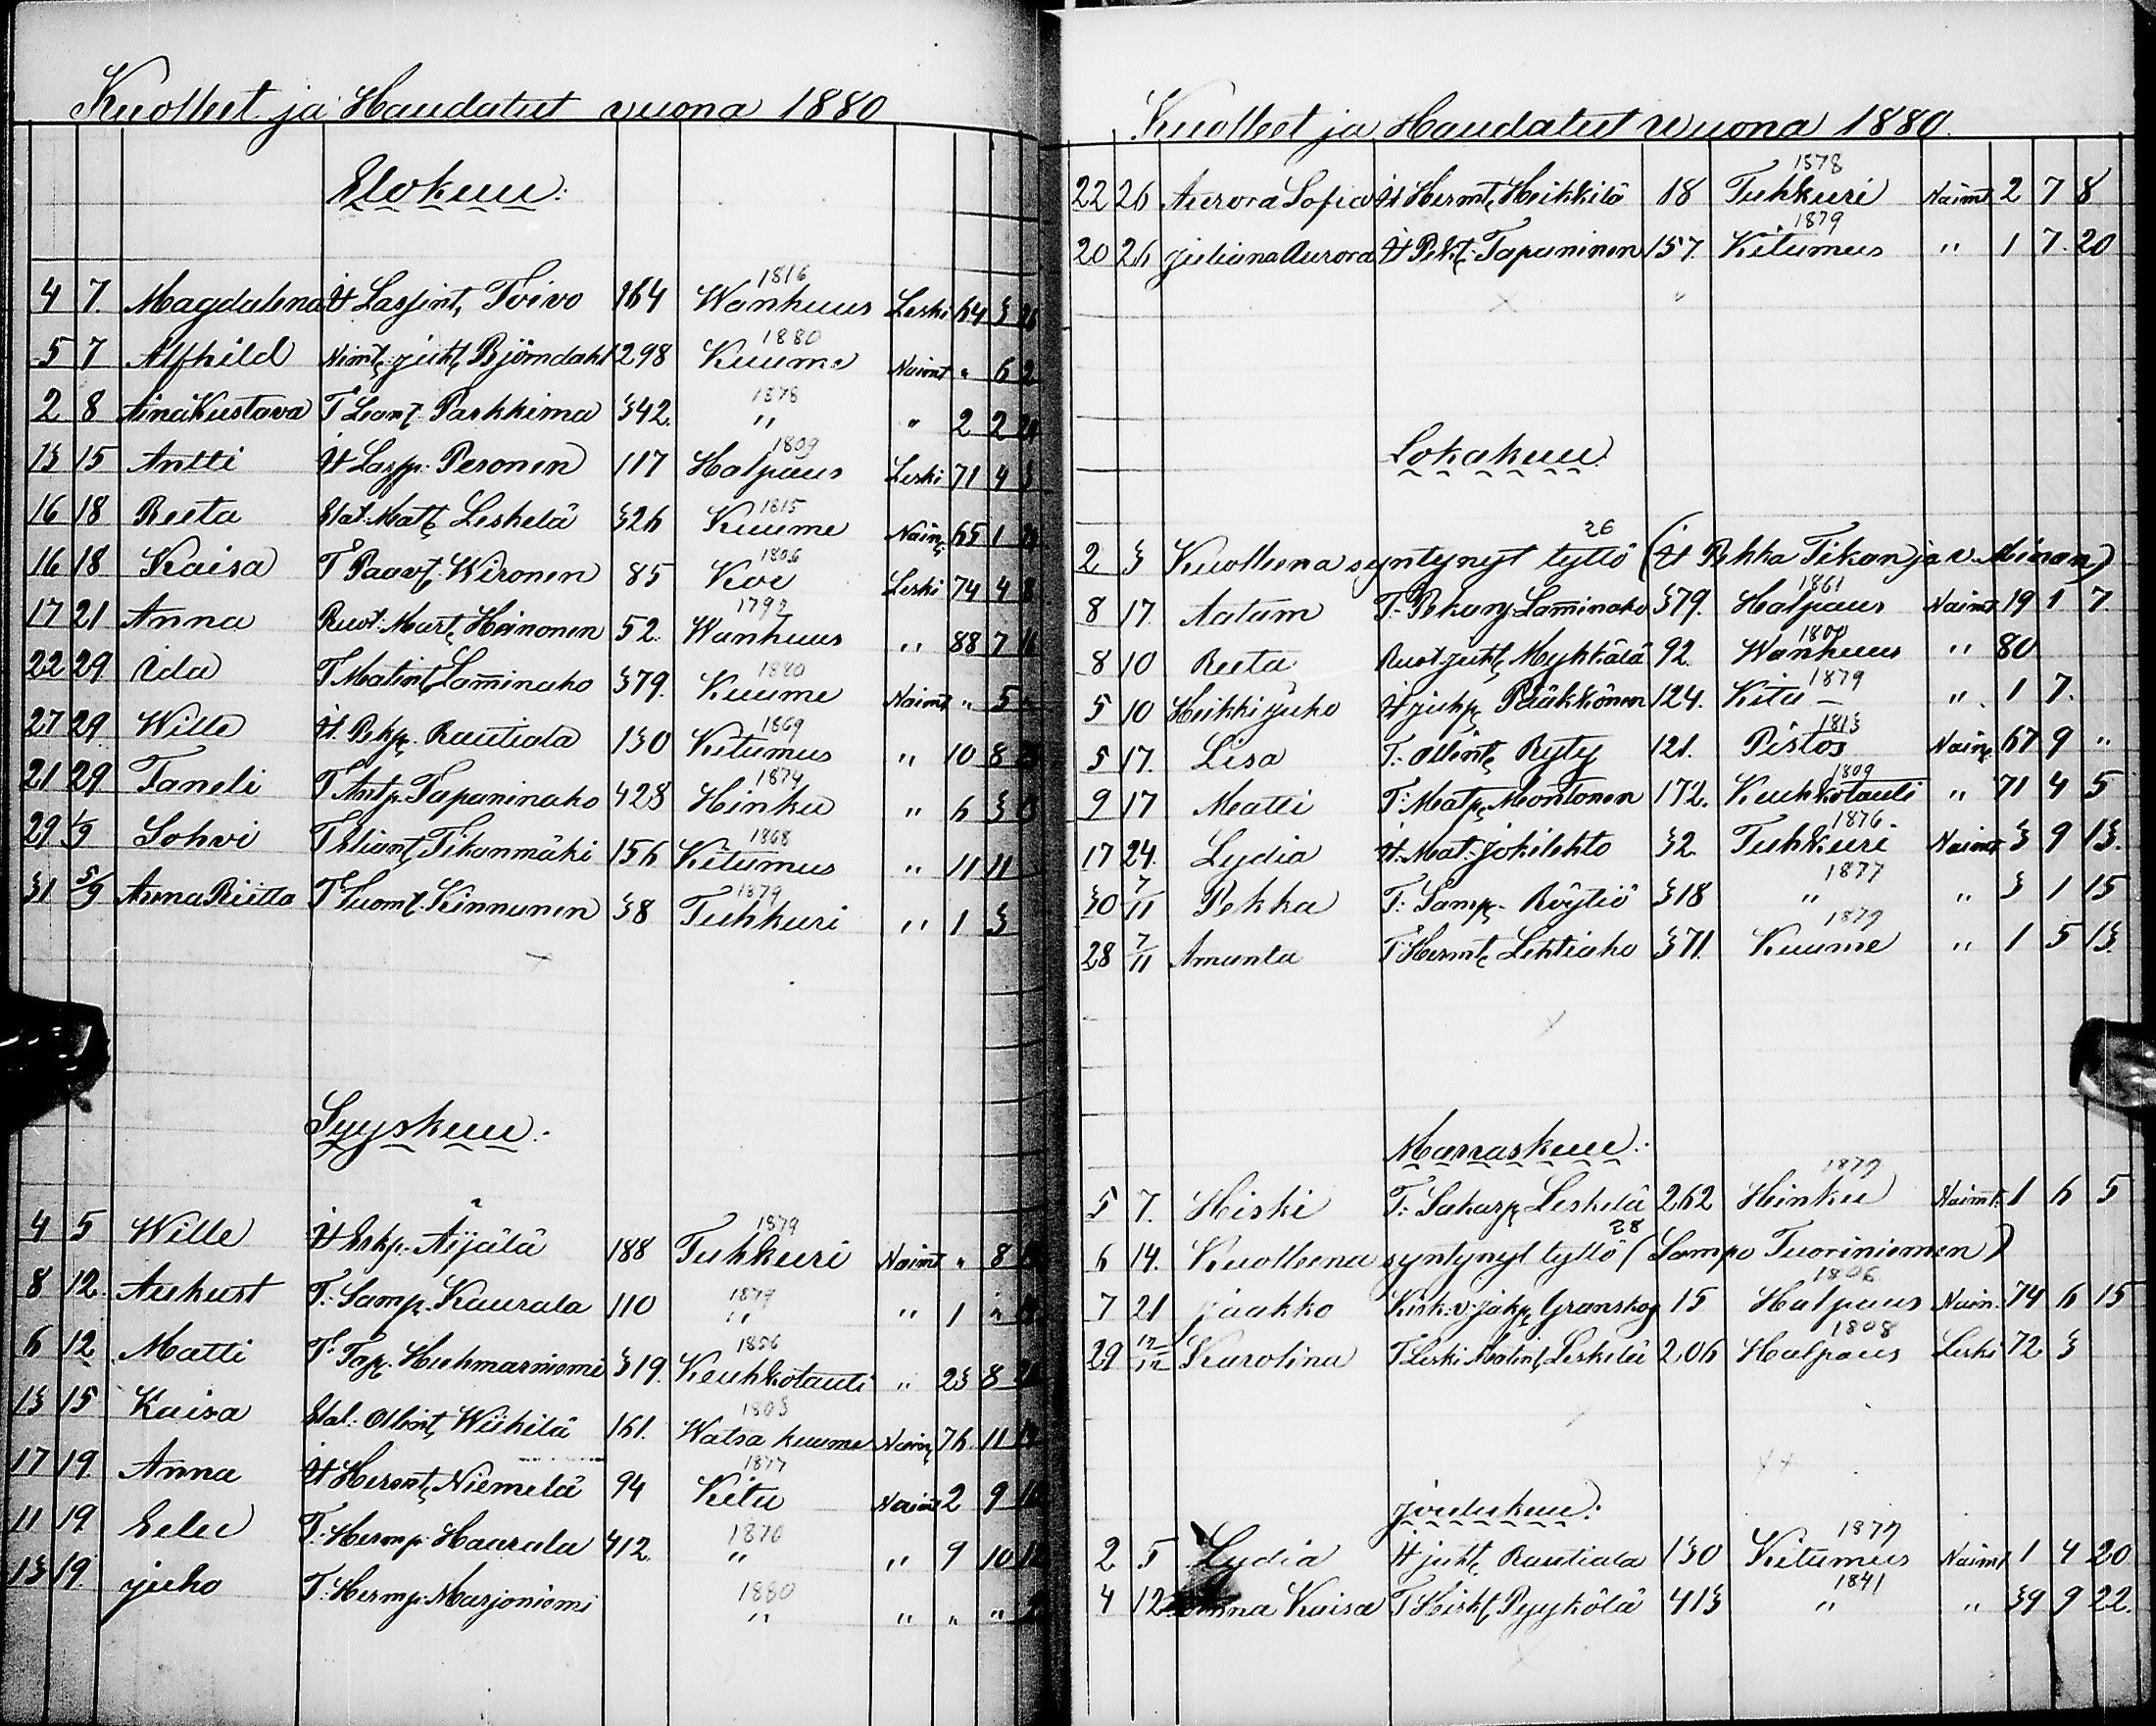 Kuolleet ja Haudatut vuona 1880
Elokuu:
4 7. Magdalena It Lasjint, Toivo 164 1816 Wanhuus Leski 64 3 26
5 7 Alfhild Nimt. juht, Björndahl 298 1880 Kuume Naimt " 6 2
2 8 Aina Kustava T Leant. Parkkima 342. 1878 " " 2 2
13 15 Antti It Lasp. Peronen 117 1809 Halpaus Leski 71 4 3
16 18 Reeta Elat. Matt, Leskelä 326 1815 Kuume Nain, 65 1
16 18 Kaisa T Paavt, Wironen 85 1806 Koe Leski 74 4 8
17 21 Anna Ruot. Mart, Heinonen 52. 1792 Wanhuus " 88 7 16
22 29 Ida T Matint, Laminaho 379. 1880 Kuume Naimt " 5 "
27 29 Wille It. Pekp. Rautiola 130 1869 Kitumus " 10 8
21 29 Taneli T Antp. Tapaninaho 428 1874 Hinku " 6 3
29 1/9 Sohvi T Eliant, Tikanmäki 156 1868 Kitumus " 11 11
31 5/9 Anna Riitta T Tuomt. Kinnunen 38 1879 Tuhkuri " 1 3
Syyskuu:
4 5 Wille It Erkp. Äijälä 188 1879 Tuhkuri Naimt " 8
8 12. Aukust T. Samp. Kaurala 110 1879 " " 1 "
6 12 Matti T. Tap. Huhmarniemi 319. 1856 Keuhkotauti " 23 8
13 15 Kaisa Elat. Ollint, Wiihilä 161. 1803 Watsa kuume Nain, 76 11
17 19. Anna It Hermt, Niemelä 94 1877 Kitu Naimt 2 9
11 19. Eelu T. Hermp. Haarala 412. 1870 " " 9 10
13 19. Juho T. Hermp. Marjoniemi 1880 " " " "
Kuolleet ja Haudatut wuona 1880.
22 26 Aurora Sofia It Hermt, Heikkilä 18 1878 Tuhkuri Naimt 2 7 8
20 26 Juliana Aurora It Pekt. Tapaninen 157. 1879 Kitumus " 1 7. 20
Lokakuu
2 3 Kuolleena syntynyt tyttö 26 (It Pekka Tikan ja v. Minan)
8 17. Aatam T. Pekanp. Laminaho 379. 1861 Halpaus Naimt. 19 1 7.
8 10 Reeta Ruot juht, Myhkälä 92. 1800 Wanhuus " 80
5 10 Heikki Juho It juhp, Pääkkönen 124. 1879 Kitu - " 1 7.
5 17. Lisa T. Ollint, Ryty 121. 1813 Pistos Nain, 67 9 "
9 17 Matti T. Matp, Montonen 172. 1809 Keuhkotauti " 71 4 5
17 24. Lydia It. Mat. Jokilehto 32. 1876 Tuhkuri Naimt 3 9 13.
30 7/11 Pekka T. Samp. Röytiö 318 1877 " " 3 1 15
28 7/11 Amanta T Hermt, Lehtiaho 371. 1879 Kuume " 1 5 13.
Marraskuu:
5 7. Hiski T. Sakarp, Leskelä 262 1879 Hinku Naimt. 1 6 5
6 14. Kuolleena syntynyt tyttö 28 (Sampo Tuoriniemen)
7 21 Jaakko Kirk. v. jakp, Granskog 15 1806 Halpaus Nain. 74 6 15
29 12/12 Karolina T Leski Matint, Leskelä 206 1808 Halpaus Leski 72 3
Joulukuu:
2 5 Lydia It juht, Rautiola 130 1879 Kitumus Naimt 1 4 20
4 12 Anna Kaisa T Heikt, Pyykölä 413 1841 " " 39 9 22.